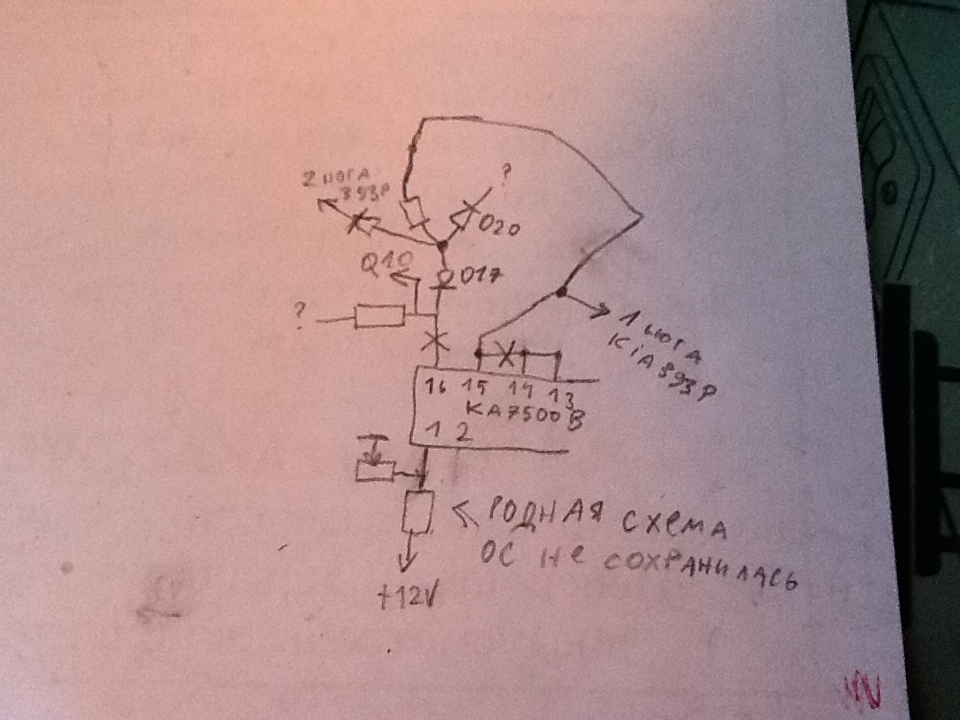 2 НОГА
393P
?
D20
Q10
D17
?
1 НОГА
KiA393P
16 15 14 13
KA7500B
1 2
РОДНАЯ СХЕМА
ОС НЕ СОХРАНИЛАСЬ
+12V